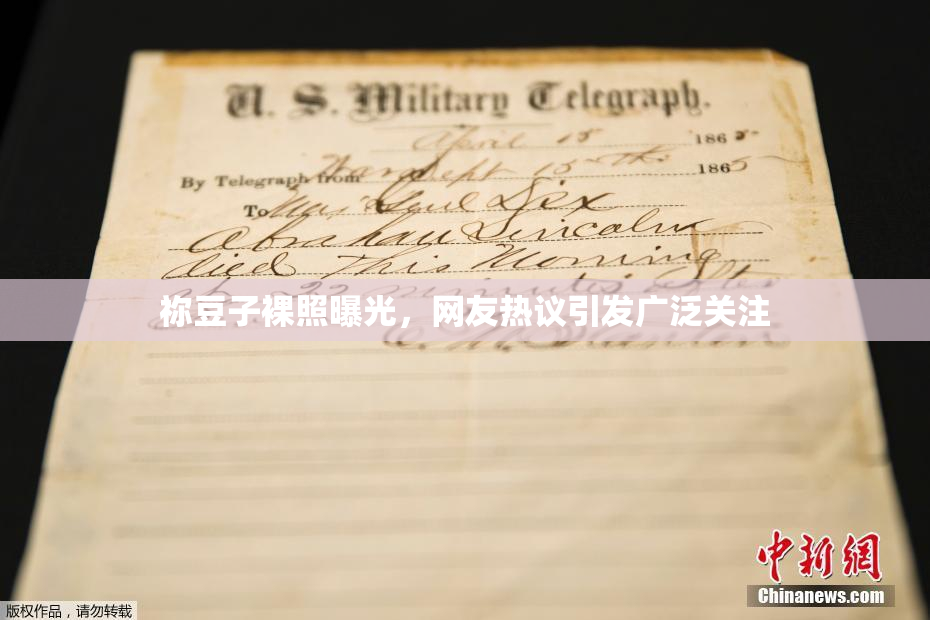 U. S. Military Telegraph.
April 15 1865
By Telegraph from War Dept 15th 1865
To Maj Genl Dix
Abraham Lincoln
died This Morning
at 22 minutes after
祢豆子裸照曝光，网友热议引发广泛关注
E. M. Stanton
中新网
Chinanews.com
版权作品，请勿转载